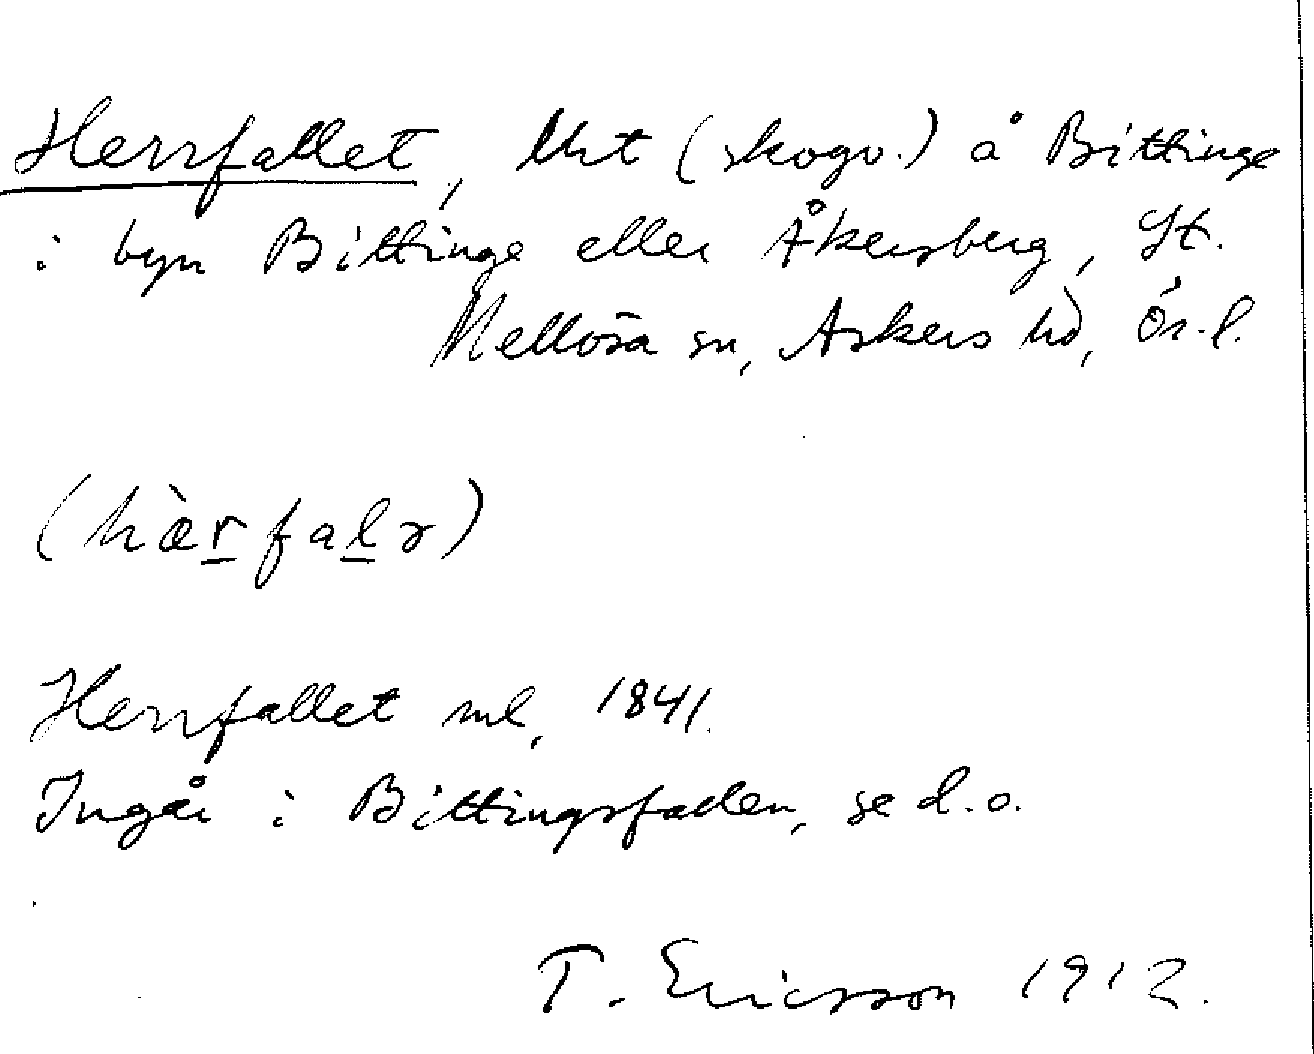 Herrfallet, Urt (skogv.) å Bittinge
i byn Bittinge eller Åkersberg, St.
Mellösa sn, Askers hd, Ör.l.
(hæ̀r̲fal̲ə)
Herrfallet ml, 1841.
Ingår i Bittingsfallen, se d.o.
T. Ericsson 1912.